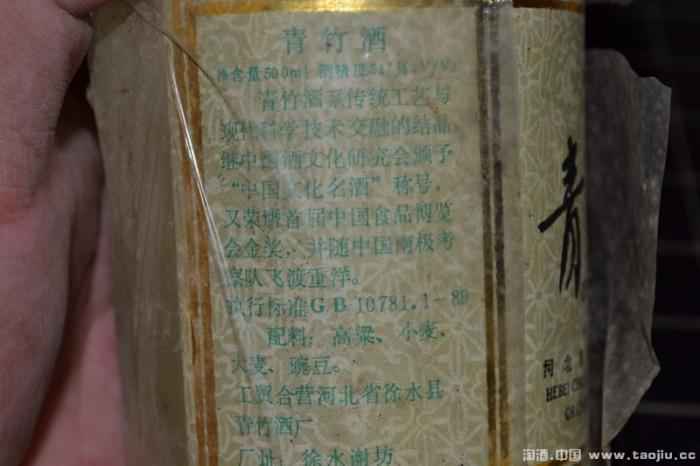 青竹酒
净含量500ml 酒精度54°%(V/V)
青竹酒系传统工艺与
现代科学技术交融的结晶。
继中国酒文化研究会颁予
“中国文化名酒”称号,
又荣博首届中国食品博览
会金奖,并随中国南极考
察队飞渡重洋。
执行标准GB 10781.1-89
配料:高粱、小麦、
大麦、豌豆。
工贸合营河北省徐水县
青竹酒厂
厂址:徐水谢坊
青
河北
HEBEI
淘酒.中国 www.taojiu.cc